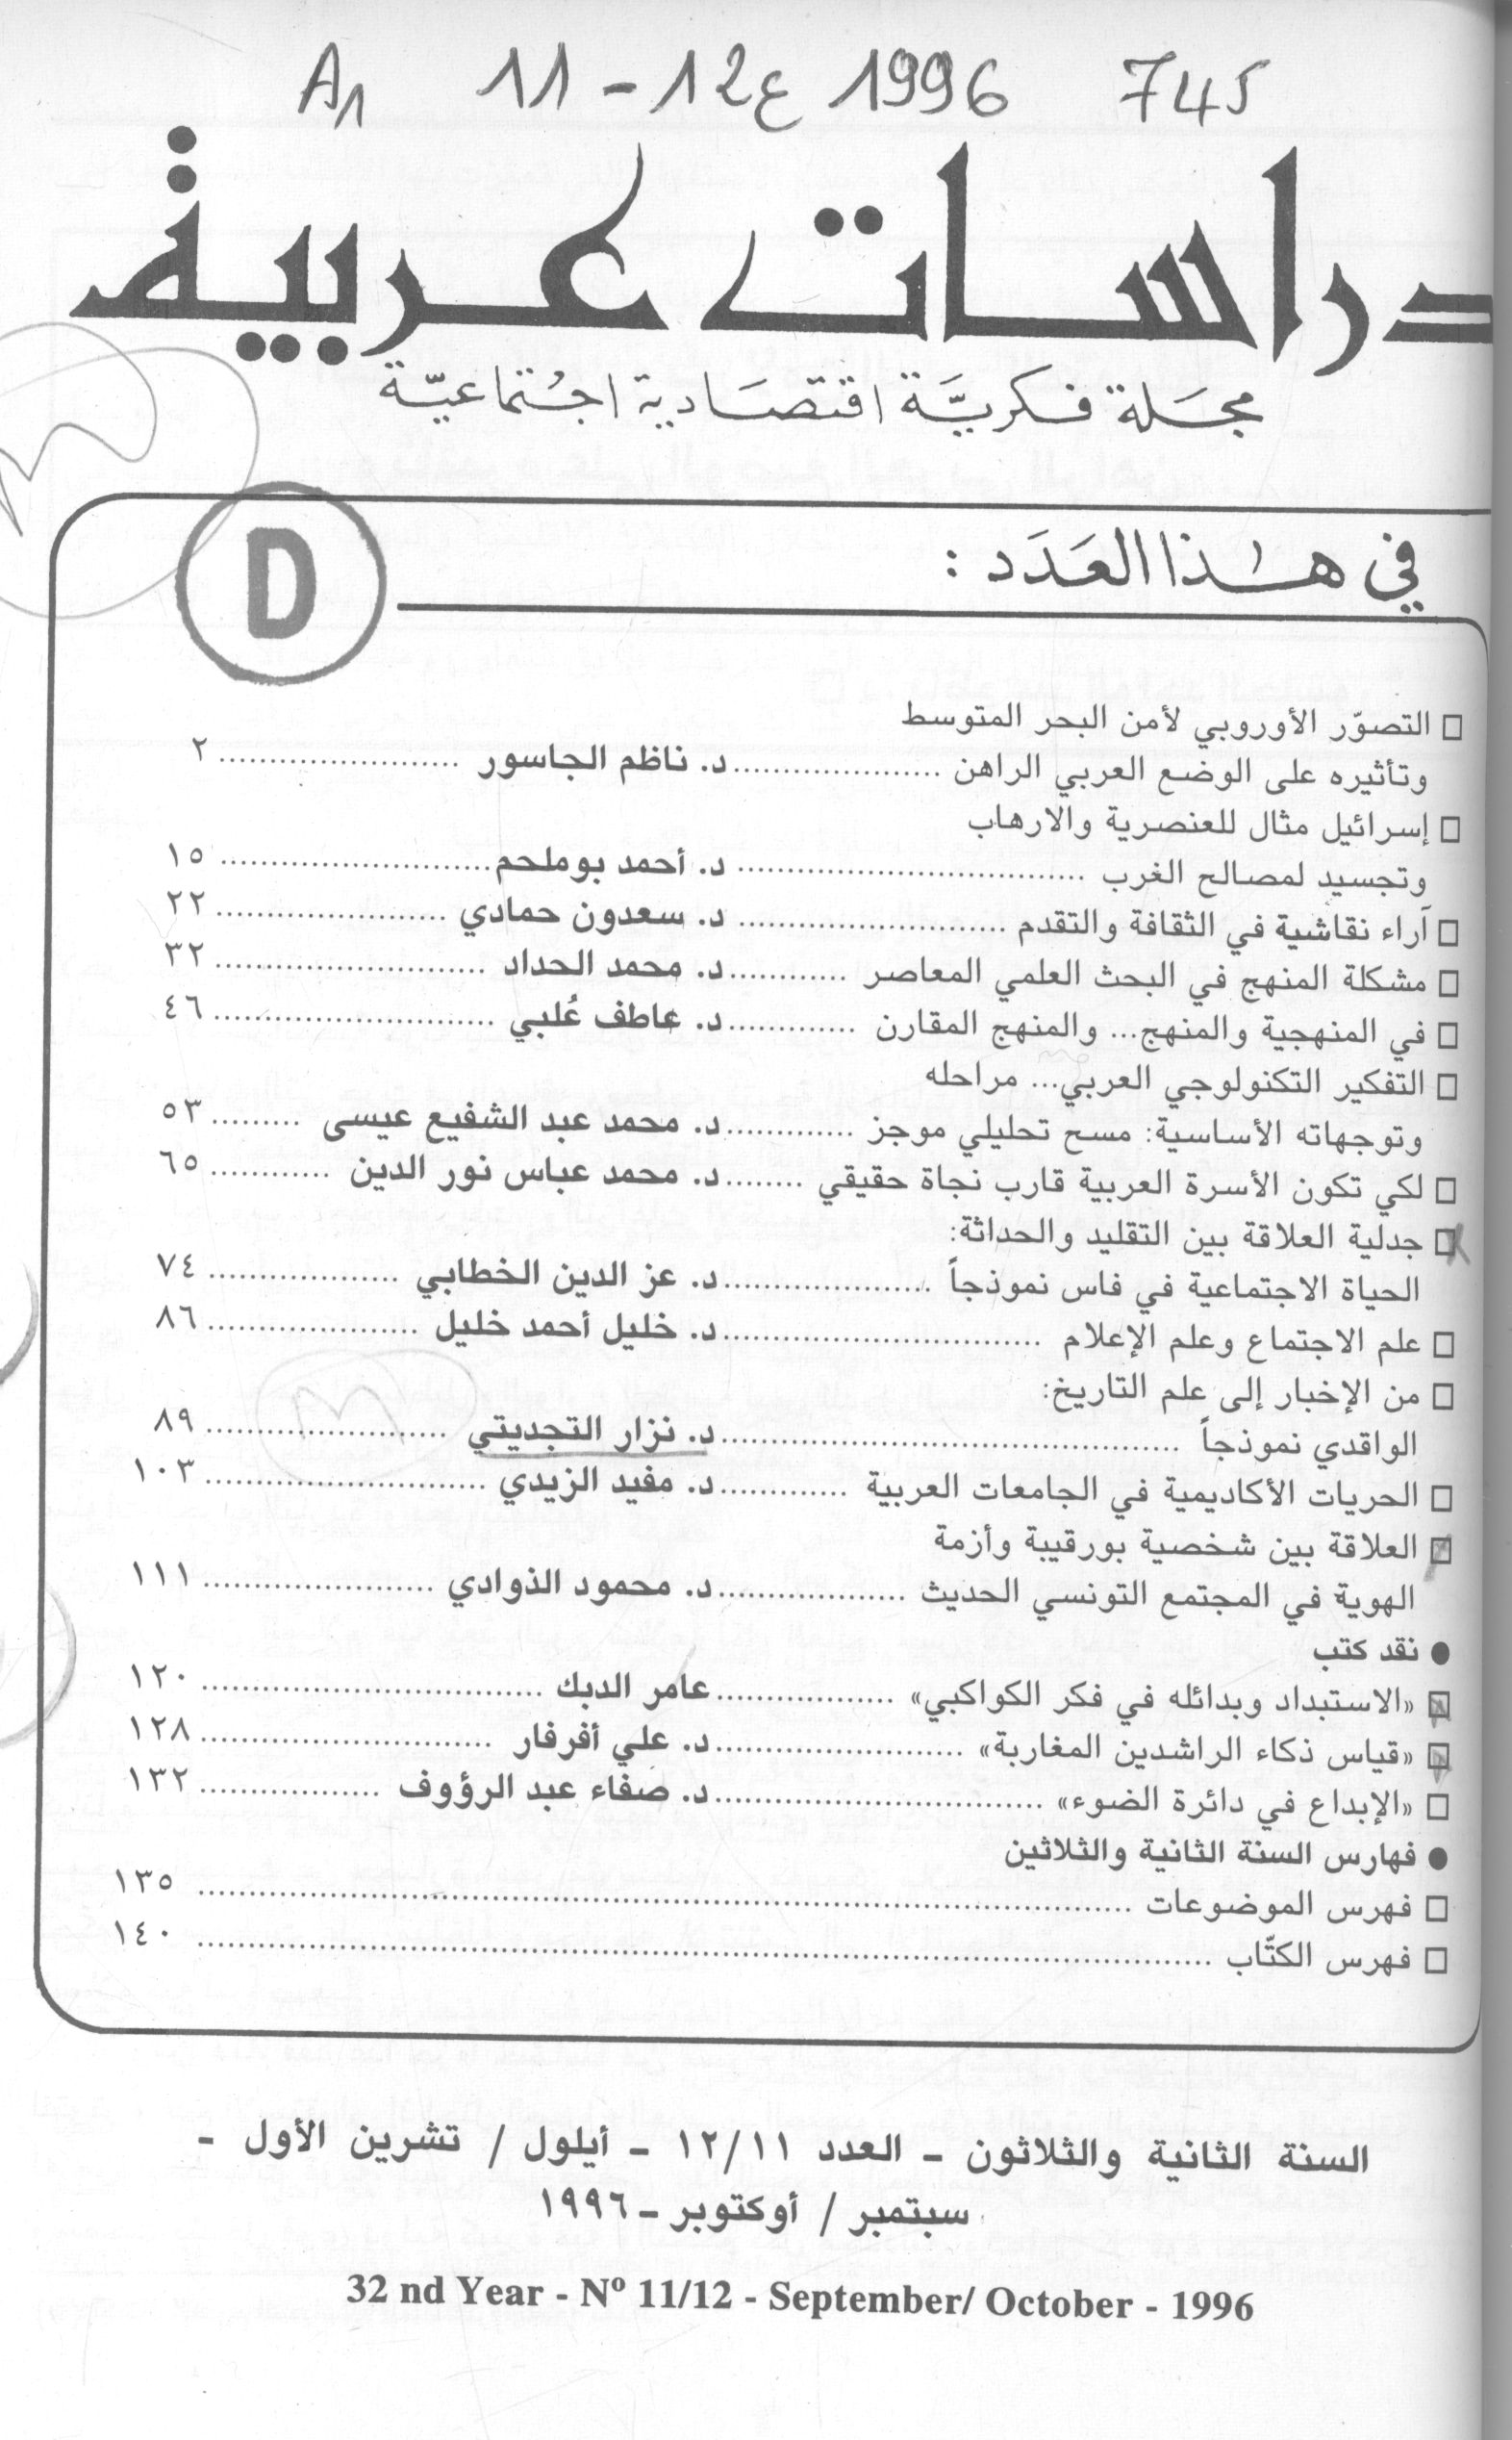 A1 11-12ع 1996 745
دراسات عربية
مجَلة فكريَّة اقتصَادية اجتماعيّة
D
في هذا العَدَد :
التصوّر الأوروبي لأمن البحر المتوسط
وتأثيره على الوضع العربي الراهن ..................... د. ناظم الجاسور ........................ ٢
إسرائيل مثال للعنصرية والارهاب
وتجسيد لمصالح الغرب ................................... د. أحمد بوملحم ........................... ١٥
آراء نقاشية في الثقافة والتقدم ........................... د. سعدون حمادي ....................... ٢٢
مشكلة المنهج في البحث العلمي المعاصر ............ د. محمد الحداد ........................... ٣٢
في المنهجية والمنهج... والمنهج المقارن ............. د. عاطف عُلبي ............................ ٤٦
التفكير التكنولوجي العربي... مراحله
وتوجهاته الأساسية: مسح تحليلي موجز ............. د. محمد عبد الشفيع عيسى ......... ٥٣
لكي تكون الأسرة العربية قارب نجاة حقيقي ........ د. محمد عباس نور الدين ............ ٦٥
جدلية العلاقة بين التقليد والحداثة:
الحياة الاجتماعية في فاس نموذجاً ..................... د. عز الدين الخطابي ................... ٧٤
علم الاجتماع وعلم الإعلام ................................ د. خليل أحمد خليل ..................... ٨٦
من الإخبار إلى علم التاريخ:
الواقدي نموذجاً .............................................. د. نزار التجديتي ........................ ٨٩
الحريات الأكاديمية في الجامعات العربية ............. د. مفيد الزيدي ............................ ١٠٣
العلاقة بين شخصية بورقيبة وأزمة
الهوية في المجتمع التونسي الحديث ................... د. محمود الذوادي ....................... ١١١
● نقد كتب
«الاستبداد وبدائله في فكر الكواكبي» .................. عامر الدبك .................................. ١٢٠
«قياس ذكاء الراشدين المغاربة» ......................... د. علي أفرفار ............................. ١٢٨
«الإبداع في دائرة الضوء» ................................. د. صفاء عبد الرؤوف .................. ١٣٢
● فهارس السنة الثانية والثلاثين
فهرس الموضوعات ............................................................................................. ١٣٥
فهرس الكتّاب ..................................................................................................... ١٤٠
السنة الثانية والثلاثون - العدد ١٢/١١ - أيلول / تشرين الأول -
سبتمبر / أوكتوبر - ١٩٩٦
32 nd Year - Nº 11/12 - September/ October - 1996